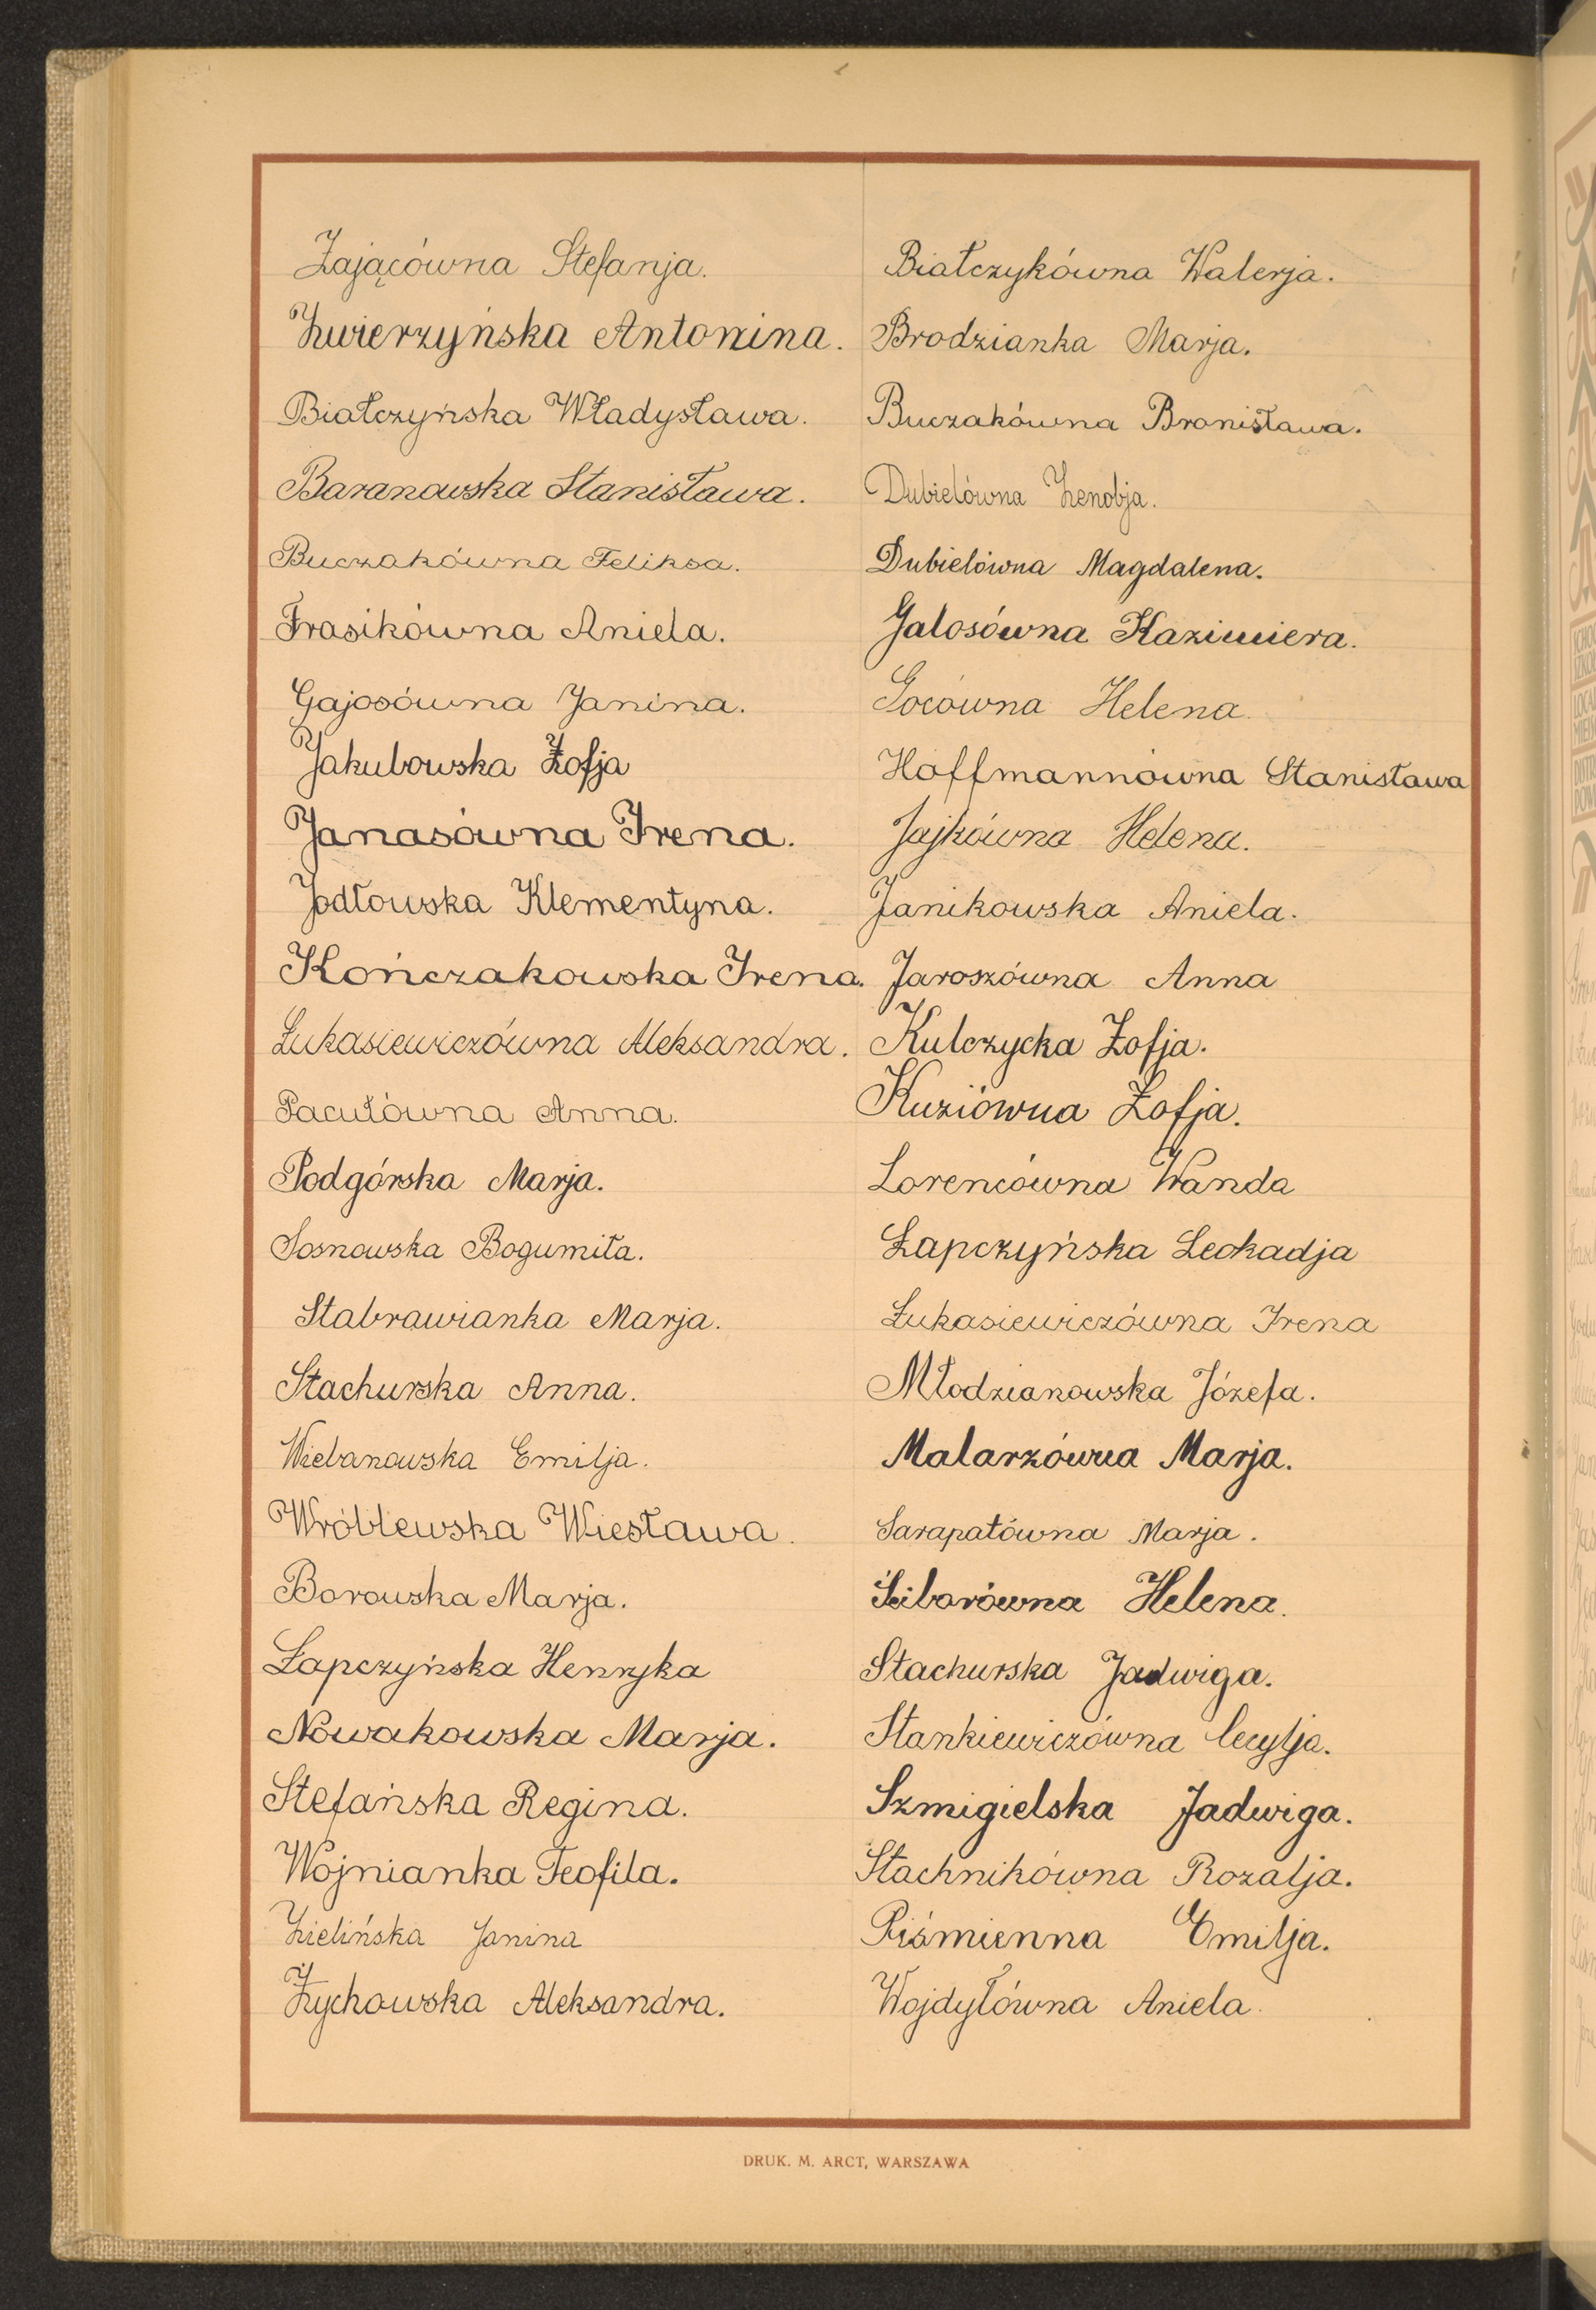 Zającówna Stefanja.
Zwierzyńska Antonina.
Białczyńska Władysława.
Baranowska Stanisława.
Buczakówna Feliksa.
Frasikówna Aniela.
Gajosówna Janina.
Jakubowska Zofja
Janasówna Irena.
Jodłowska Klementyna.
Kończakowska Irena.
Łukasiewiczówna Aleksandra.
Pacułówna Anna.
Podgórska Marja.
Sosnowska Bogumiła.
Stabrawianka Marja.
Stachurska Anna.
Wiebanowska Emilja.
Wróblewska Wiesława.
Borowska Marja.
Łapczyńska Henryka
Nowakowska Marja.
Stefańska Regina.
Wojnianka Teofila.
Zielińska Janina
Żychowska Aleksandra.
Białczykówna Walerja.
Brodzianka Marja.
Buczakówna Bronisława.
Dubielówna Zenobja.
Dubielówna Magdalena.
Galosówna Kazimiera.
Gocówna Helena.
Hoffmannówna Stanisława
Jajkówna Helena.
Janikowska Aniela.
Jaroszówna Anna
Kulczycka Zofja.
Kuziówna Zofja.
Lorencówna Wanda
Łapczyńska Leokadja
Łukasiewiczówna Irena
Młodzianowska Józefa.
Malarzówna Marja.
Sarapatówna Marja.
Ściborówna Helena.
Stachurska Jadwiga.
Stankiewiczówna Cecylja.
Szmigielska Jadwiga.
Stachnikówna Rozalja.
Piśmienna Emilja.
Wojdyłówna Aniela.
DRUK. M. ARCT, WARSZAWA